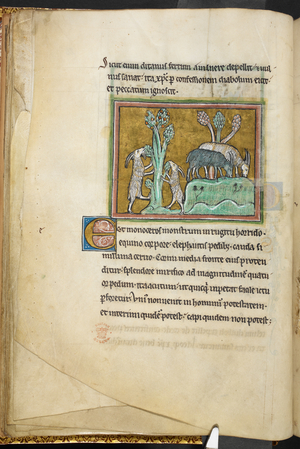 sicut enim ditanus ferrum a uulnere depellit &
nus sanat ita xp̄c p confessionem diabolum
et peccatum ignoscit
Est monoceros monstrum mugitu horrido
equino corpore elephantis pedib; cauda si
millima ceruo. Cornu media fronte eius proten
ditur splendore mirifico ad magnitudinē quatu
or pedum ita acutum ut quicquid impetat facile ictu
pforetur Viuus non uenit in hominū potestatem
et interimi quidē potest capi quidem non potest